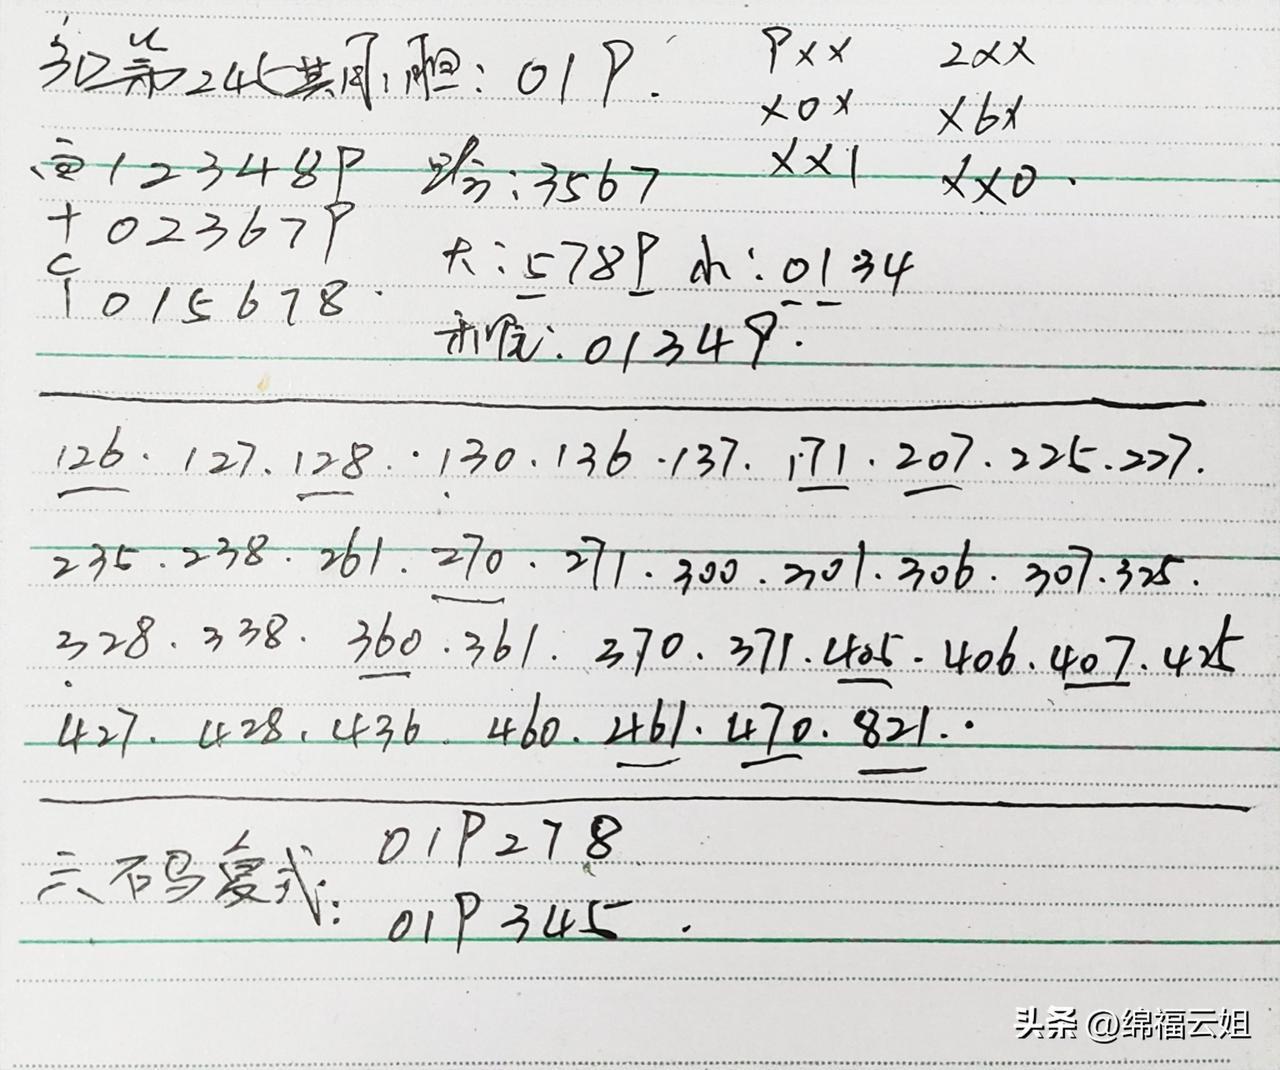 3D第245共同胆:019.
9XX 2XX
X0X X6X
XX1 XX0.
百123489 跨:3567
十023679
个015678.
大:5789 小:0134
和值:01349.
126.127.128.130.136.137.171.207.225.227.
235.238.261.270.271.300.301.306.307.325.
328.338.360.361.370.371.405.406.407.425
427.428.436.460.461.470.821.
六码复式:019278
019345.
头条 @绵福云姐